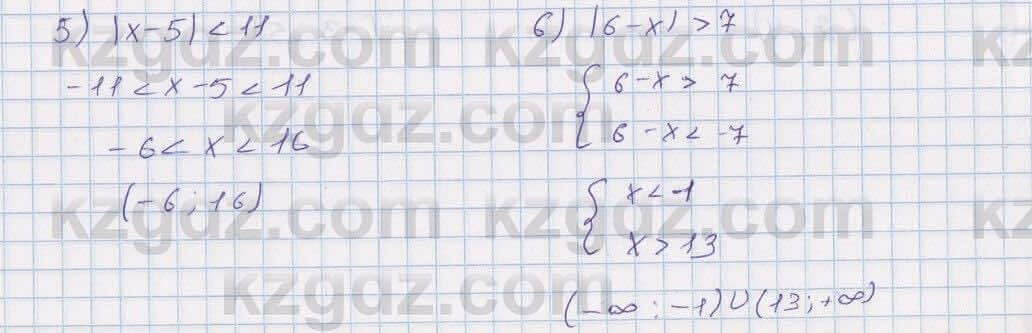 5) |x-5| < 11
-11 < x - 5 < 11
-6 < x < 16
(-6; 16)
6) |6-x| > 7
{ 6-x > 7
6-x < -7
{ x < -1
x > 13
(-∞; -1) ∪ (13; +∞)
kzgdz.com
kzgdz.com
kzgdz.com
kzgdz.com
kzgdz.com
kzgdz.com
kzgdz.com
kzgdz.com